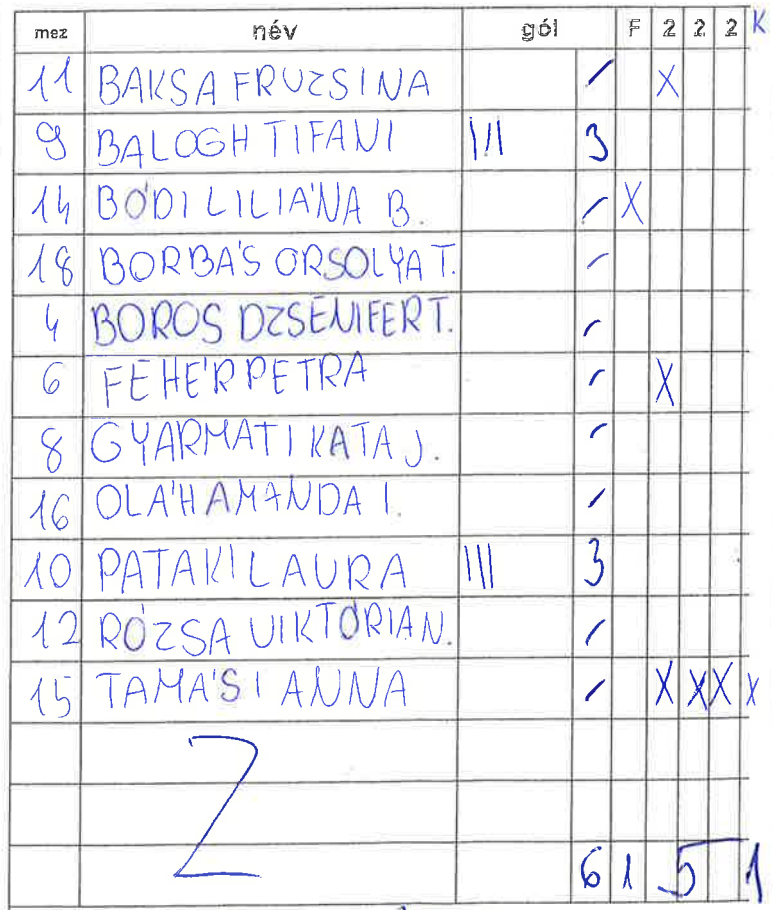 mez név gól F 2 2 2 K
11 BAKSA FRUZSINA / X
9 BALOGH TIFANI III 3
14 BÓDI LILIÁNA B. / X
18 BORBÁS ORSOLYA T. /
4 BOROS DZSENIFER T. /
6 FEHÉR PETRA / X
8 GYARMATI KATA J. /
16 OLÁH AMANDA I. /
10 PATAKI LAURA III 3
12 RÓZSA VIKTÓRIA N. /
15 TAMÁSI ANNA / X X X X
Z
6 1 5 1